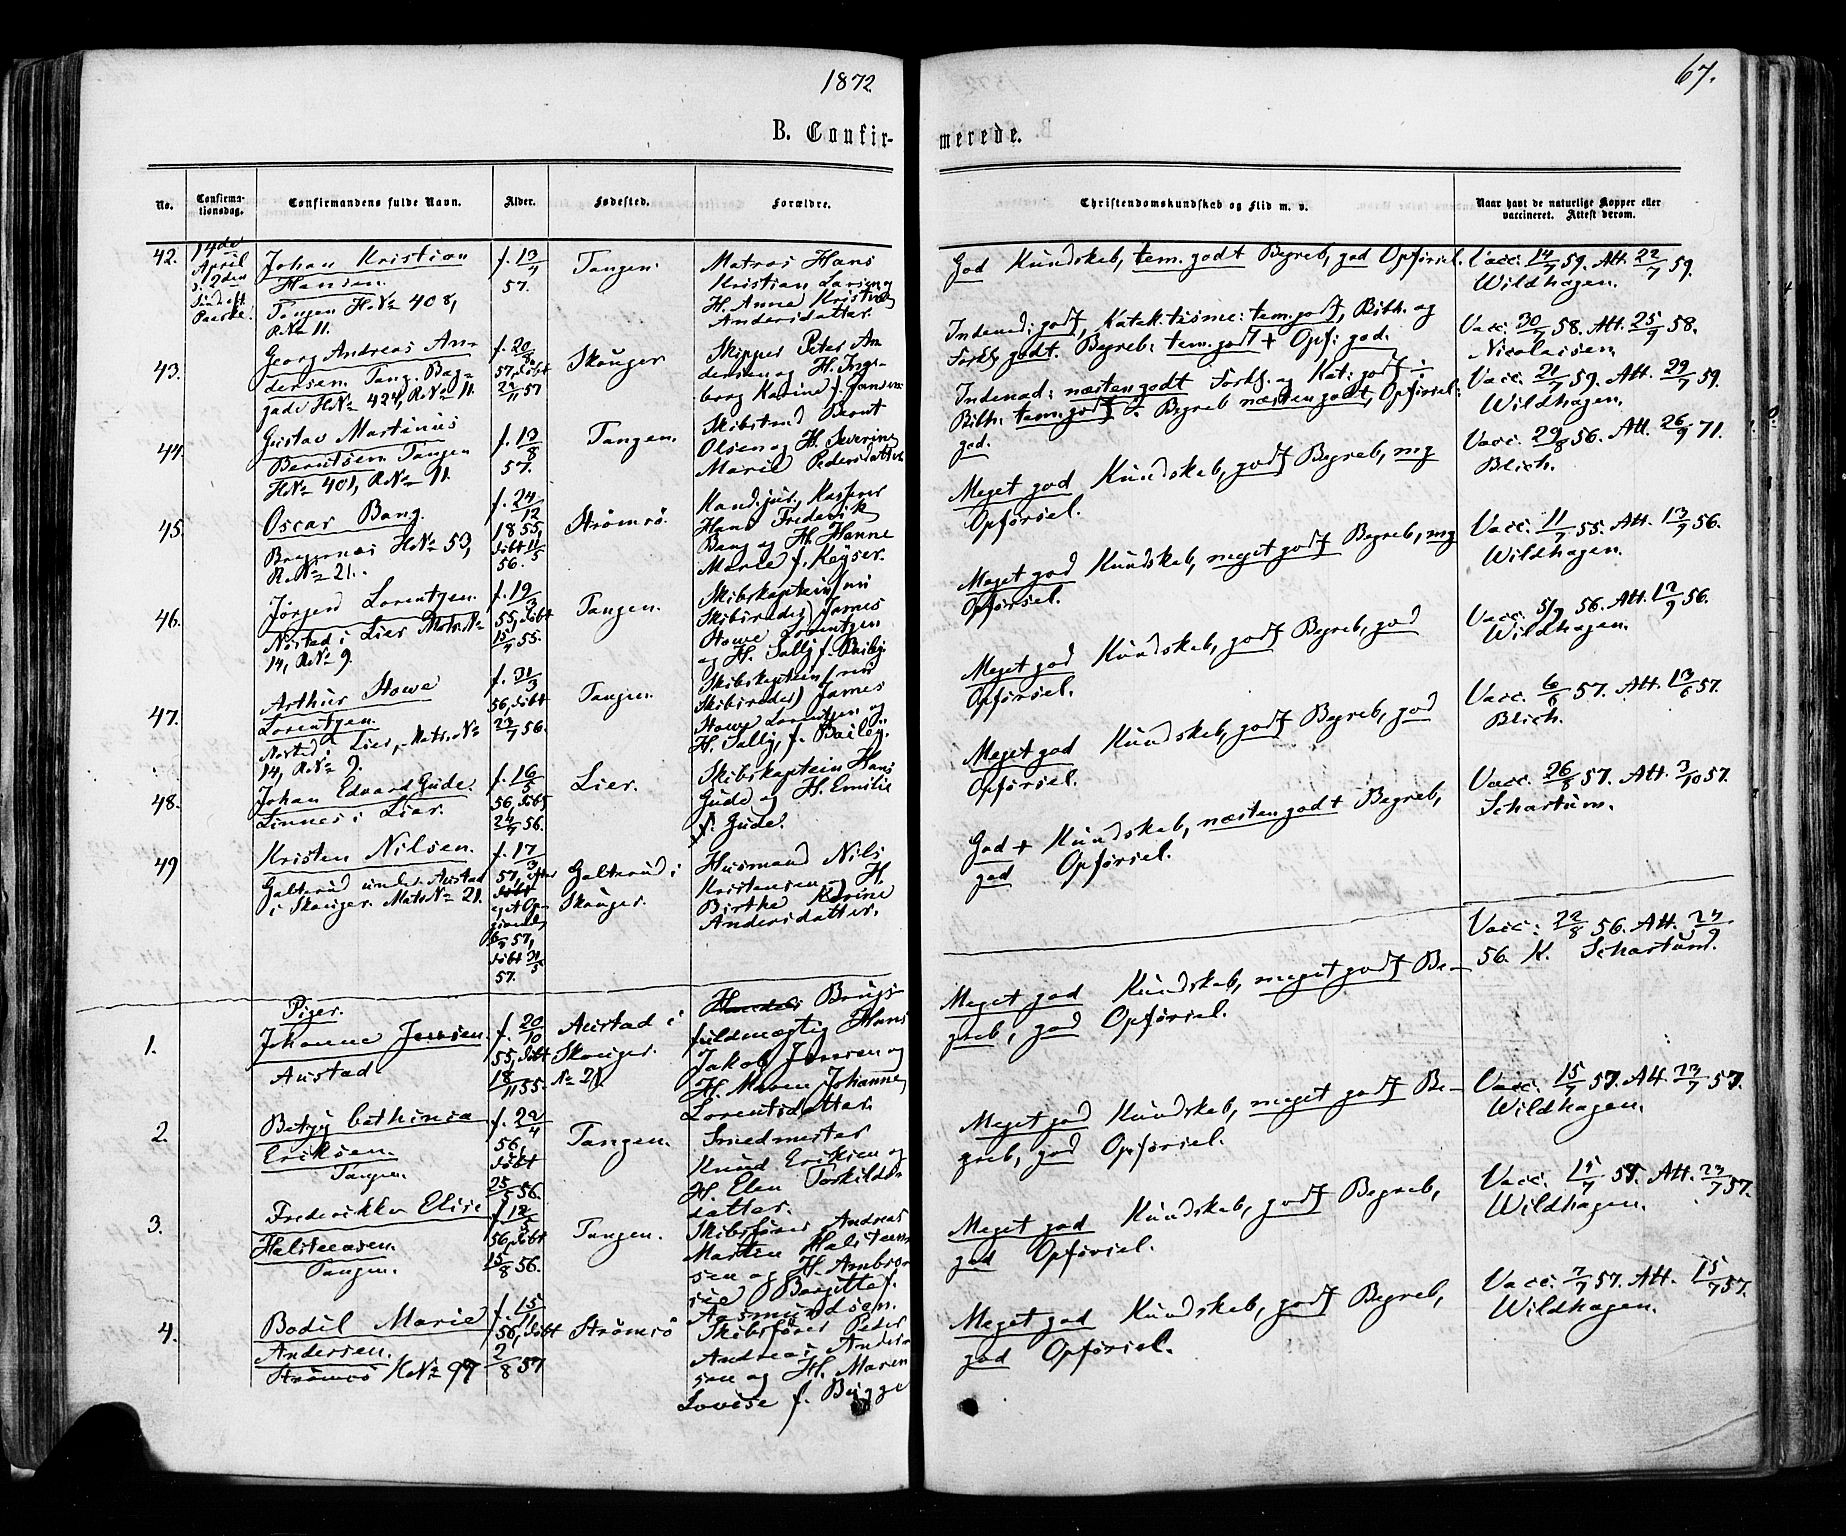 1872
67.
B. Confir-
merede.
No.
Confirma-
tionsdag.
Confirmandens fulde Navn.
Alder.
Fødested.
Forældre.
Christendomskundskab og Flid m. v.
Naar havt de naturlige Kopper eller
vaccineret. Attest derom.
42.
14de
April
2den
Påske.
Johan Kristian
Hansen.
Tangen H.No 408,
R.No 11.
f. 13/7
57.
Tangen.
Matros Hans
Kristian Larsen og
H. Anne Kristine
Andersdatter.
God Kundskab, tem. godt Begreb, god Opførsel.
Vacc. 14/7 59. Att. 22/7 59.
Wildhagen.
43.
Georg Andreas An-
dersen. Tang. Bag-
gade H.No 424, R.No 11.
f. 20/8
57, døbt
22/11 57
Skouger
Skipper Peter An
dersen og H. Inge-
borg Karine f. Jansen
Indenad: godt, Katekisme: tem. godt, Bibh. og
Forkl. godt. Begreb: tem. godt + Opf: god.
Vacc. 30/7 58. Att. 25/9 58.
Nicolaisen.
44.
Gustav Martinius
Berntsen Tangen
H.No 401, R.No 11.
f. 13/8
57.
Tangen.
Skibstmd Bernt
Olsen og H. Severine
Marie Pedersdatter
Indenad: næsten godt Forkl. og Kat: godt ÷
Bibh. tem. godt ÷ Begreb næsten godt, Opførsel:
god.
Vacc. 21/7 59. Att. 29/7 59.
Wildhagen.
45.
Oscar Bang.
Bragernæs H.No 53,
R.No 21.
f. 24/12
1855,
døbt 11/5
56.
Strømsø.
Kand. jur., Kasserer
Hans Frederik
Bang og H. Hanne
Marie f. Keyser.
Meget god Kundskab, godt Begreb, mg
Opførsel.
Vacc. 29/8 56. Att. 26/9 71.
Blich.
46.
Jørgen Lorentzen.
Nøsted i Lier Matr.No
14, R.No 9.
f. 19/3
55, døbt
15/7 55.
Tangen.
Skibskaptein (nu
Skibsreder) James
Howe Lorentzen
og H. Sally f. Bailey
Meget god Kundskab, meget godt Begreb, mg
Opførsel.
Vacc. 11/7 55. Att. 13/9 56.
Wildhagen.
47.
Arthur Howe
Lorentzen.
Nøsted i Lier, Matr.No
14, R.No 9.
f. 31/3
56, døbt
23/7 56.
Tangen.
Skibskaptein (nu
Skibsreder) James
Howe Lorentzen og
H. Sally, f. Bailey.
Meget god Kundskab, godt Begreb, god
Opførsel.
Vacc. 5/9 56. Att. 12/9 56.
Wildhagen.
48.
Johan Edvard Gude.
Linnes i Lier.
f. 16/5
56, døbt
24/7 56.
Lier.
Skibskaptein Hans
Gude og H. Emilie
f. Gude.
Meget god Kundskab, godt Begreb, god
Opførsel.
Vacc. 6/6 57. Att. 13/6 57.
Blich.
49
Kristen Nilsen.
Galterud under Austad
i Skouger. Matr.No 21.
f. 17/3
57, efter
døbt
eget Op-
givende,
57,
døbt 31/5
57.
Galterud i
Skouger.
Husmand Nils
Kristensen og H.
Birthe Karine
Andersdatter.
God + Kundskab, næsten godt Begreb,
god Opførsel.
Vacc. 26/8 57. Att. 3/10 57.
Schartum.
Piger.
1.
Johanne Jensen.
Austad.
f. 20/10
55, døbt
18/11 55.
Austad i
Skouger.
No 21.
Handels Brugs-
fuldmægtig Hans
Jakob Jensen og
H. Maren Johanne
Lorentsdatter.
Meget god Kundskab, meget godt Be-
greb, god Opførsel.
Vacc: 22/8 56. Att. 24/9
56. K. Schartum.
2.
Betzy Cathinca
Eriksen.
Tangen.
f. 22/4
56,
døbt
25/5 56.
Tangen.
Smedmester
Knud Eriksen og
H. Elen Torkilds-
datter.
Meget god Kundskab, meget godt Be-
greb, god Opførsel.
Vacc. 15/7 57. Att. 23/7 57.
Wildhagen.
3.
Frederikke Elise
Halstensen.
Tangen.
f. 12/5
56, døbt
15/8 56.
Tangen.
Skibsfører Andreas
Martin Halsten-
sen og H. Ambro-
sia Bergitte f.
Aasmundsen.
Meget god Kundskab, godt Begreb,
god Opførsel.
Vacc. 15/7 57. Att. 23/7 57.
Wildhagen.
4.
Bodil Marie
Andersen.
Strømsø H.No 97
f. 15/11
56, døbt
2/8 57
Strømsø
Skibsfører Peder
Andreas Ander-
sen og H. Maren
Lovise f. Bugge
Meget god Kundskab, godt Begreb,
god Opførsel.
Vacc. 7/7 57. Att. 15/7 57.
Wildhagen.